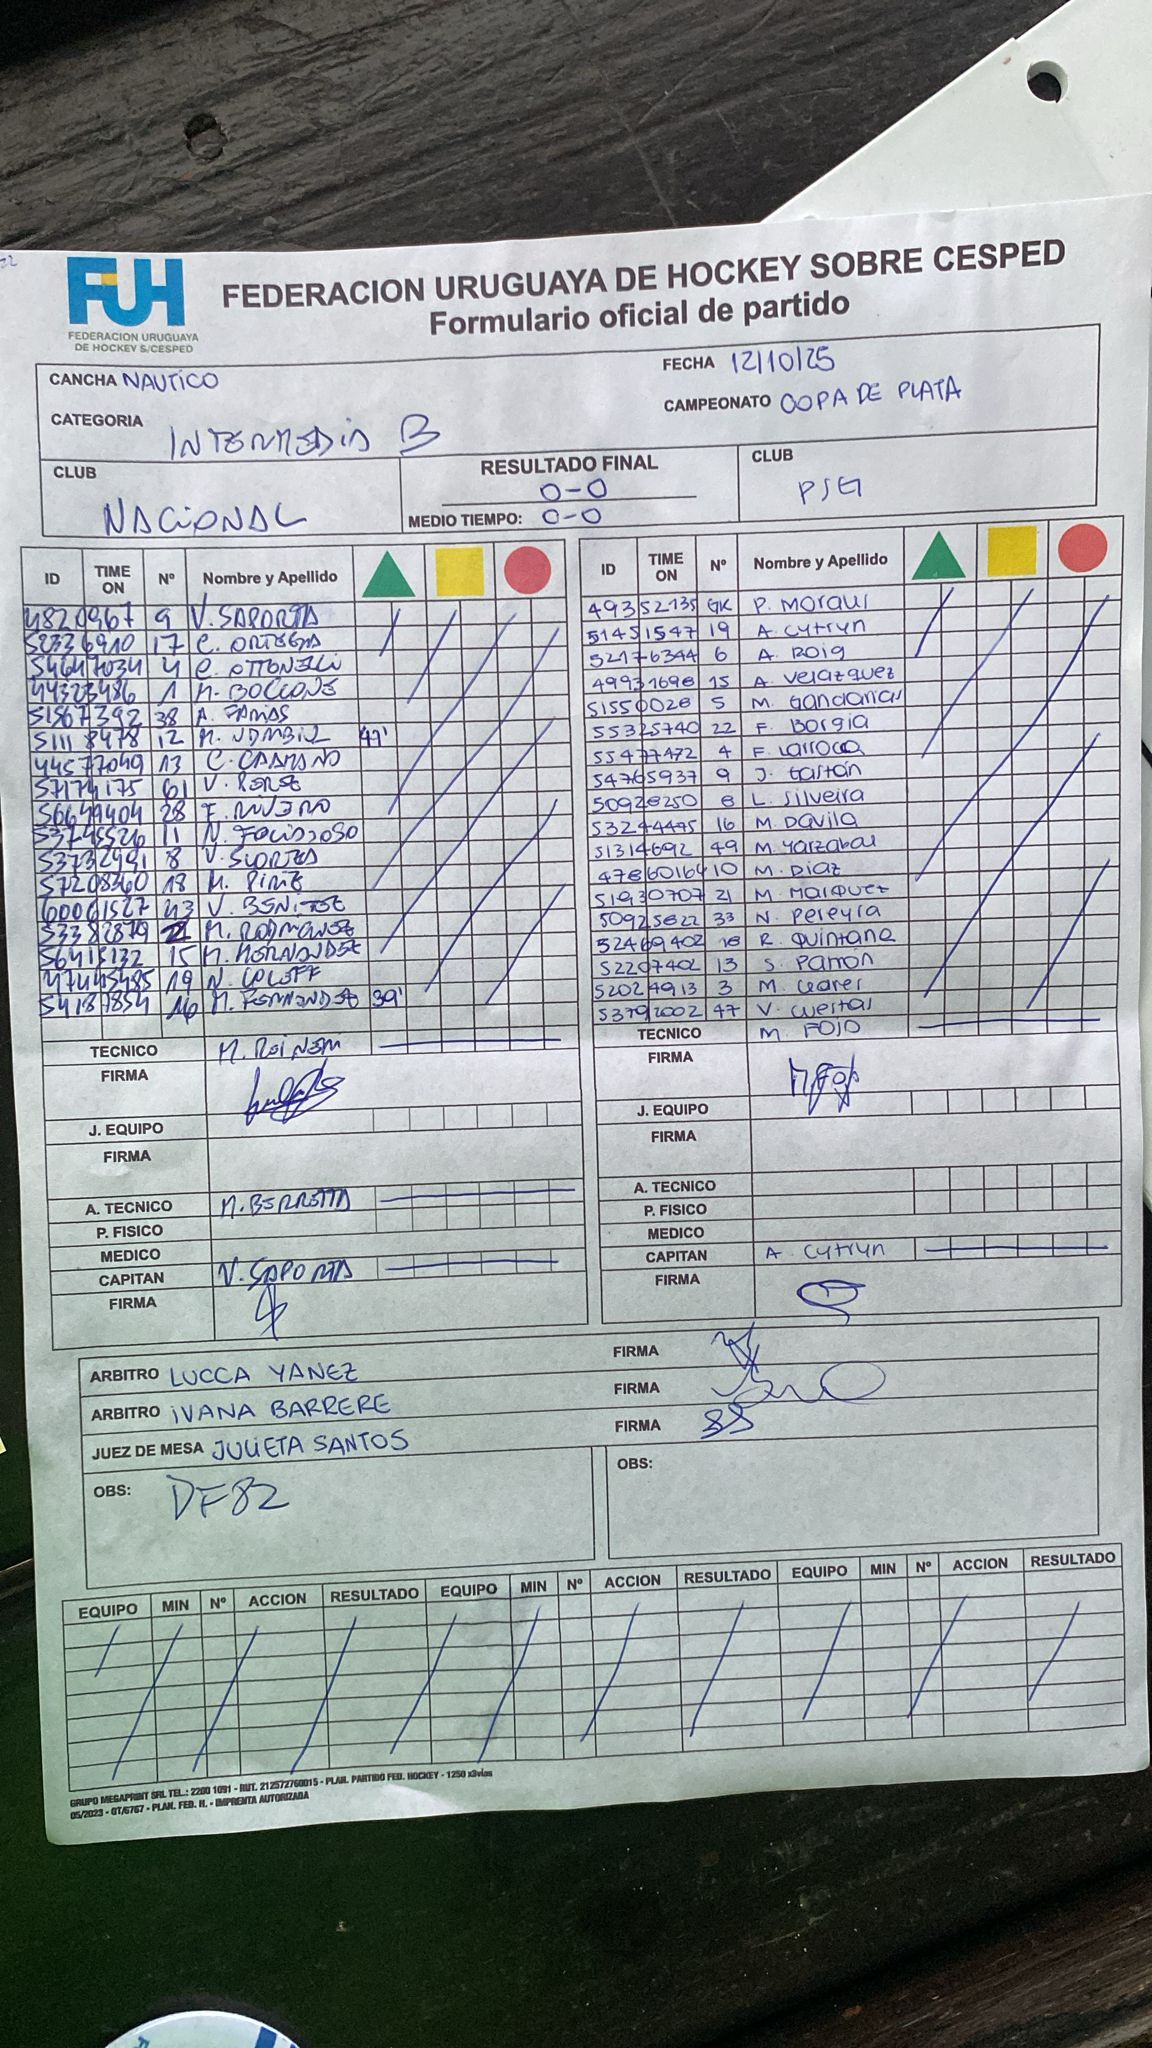 FUH
FEDERACION URUGUAYA
DE HOCKEY S/CESPED
FEDERACION URUGUAYA DE HOCKEY SOBRE CESPED
Formulario oficial de partido
CANCHA NAUTICO
FECHA 12/10/25
CATEGORIA INTERMEDIA B
CAMPEONATO COPA DE PLATA
CLUB NACIONAL
RESULTADO FINAL 0-0
MEDIO TIEMPO: 0-0
CLUB PSG
ID TIME ON Nº Nombre y Apellido
4820967 9 V. SAPORTA
52336910 17 C. ORTEGA
54647034 4 C. OTTONELLI
44323486 1 M.
51567392 38 A. FARIAS
51118478 12 M. 47'
44577049 13 C. CAAMAÑO
57174175 61 V.
56649404 28 F. RIVERO
53745526 11 N.
8 V.
57208360 18 M.
60061527 43 V. BENITEZ
53382879 M. RODRIGUEZ
56415132 15 M. HERNANDEZ
47445485 19 N. COLOFF
54187854 16 M. FERNANDEZ 39'
TECNICO M. REINEM
FIRMA
J. EQUIPO
FIRMA
A. TECNICO M. BERRETTA
P. FISICO
MEDICO
CAPITAN V. SAPORTA
FIRMA
ID TIME ON Nº Nombre y Apellido
49352135 GK P.
51451547 19 A. Cytryn
52176344 6 A. Roig
49931698 15 A. Velazquez
51550028 5 M. Gandarias
55325740 22 F. Borgia
55477472 4 F. Larroca
54765937 9 J. Gastán
50928250 8 L. Silveira
53244495 16 M. Davila
51314692 49 M. Yarzabal
47860164 10 M. Diaz
51930707 21 M. Marquez
50925822 33 N. Pereyra
52469402 18 R. Quintana
52207402 13 S. Pamón
52024913 3 M.
53792002 47 V. Cuestas
TECNICO M. FOJO
FIRMA
J. EQUIPO
FIRMA
A. TECNICO
P. FISICO
MEDICO
CAPITAN A. Cytryn
FIRMA
ARBITRO LUCCA YANEZ FIRMA
ARBITRO IVANA BARRERE FIRMA
JUEZ DE MESA JULIETA SANTOS FIRMA
OBS: DF82
OBS:
EQUIPO MIN Nº ACCION RESULTADO EQUIPO MIN Nº ACCION RESULTADO EQUIPO MIN Nº ACCION RESULTADO
GRUPO MEGAPRINT SRL TEL.: 2200 1091 - RUT. 212572760015 - PLAN. PARTIDO FED. HOCKEY - 1250 x3vias
05/2023 - OT/6767 - PLAN. FED. H. - IMPRENTA AUTORIZADA